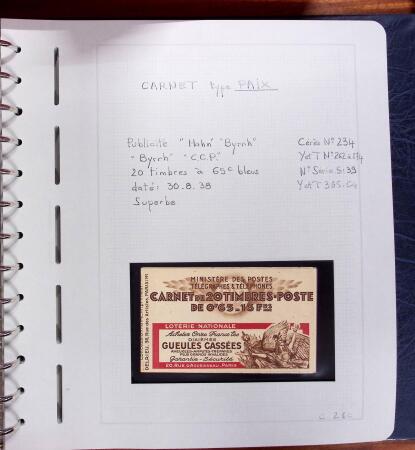 CARNET type PAIX
Publicité "Hahn" "Byrrh"
"Byrrh" "C.C.P."
20 timbres à 65c bleus
daté: 30.8.38
Superbe
Cérès N° 234
Y et T N°
N° Série S: 39
Y et T 365
MINISTÈRE DES POSTES
TÉLÉGRAPHES & TÉLÉPHONES
CARNET DE 20 TIMBRES-POSTE
DE 0F65-13 FRS
LOTERIE NATIONALE
Achetez
DIXIÈMES
GUEULES CASSÉES
Garantie - Sécurité
PARIS
DELRIEU, 38, Rue des Artistes, PARIS